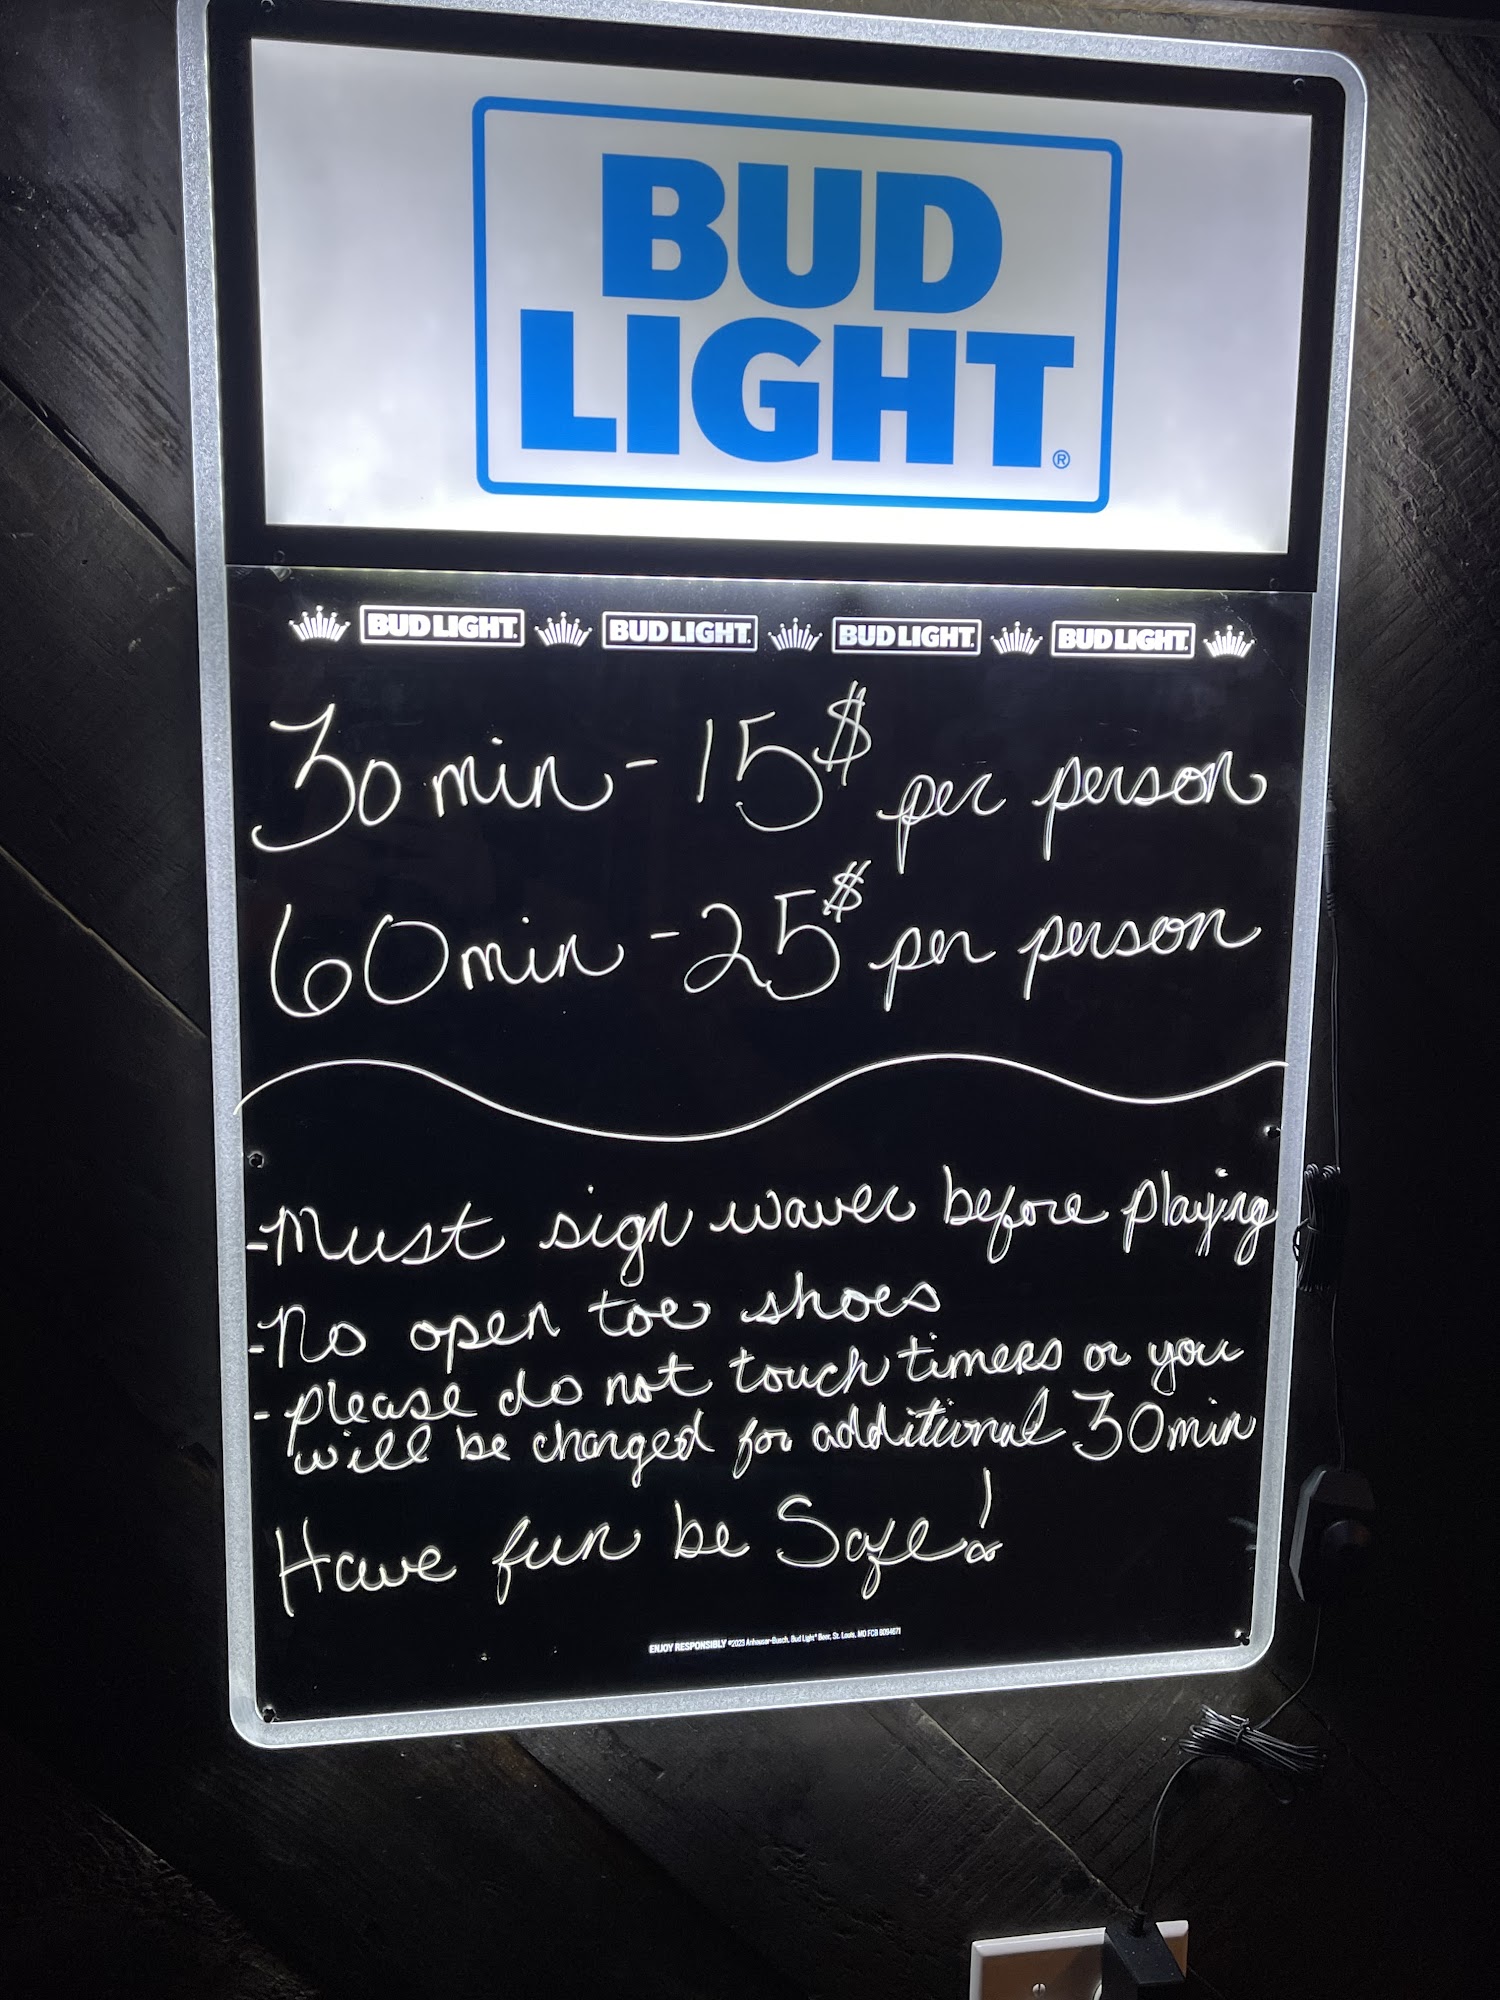 BUD
LIGHT®
BUD LIGHT. BUD LIGHT. BUD LIGHT. BUD LIGHT.
30 min - 15$ per person
60 min - 25$ per person
- Must sign waver before playing
- No open toe shoes
- please do not touch timers or you
will be charged for additional 30 min
Have fun be Safe!
ENJOY RESPONSIBLY ©2023 Anheuser-Busch, Bud Light® Beer, St. Louis, MO FCB 6094671